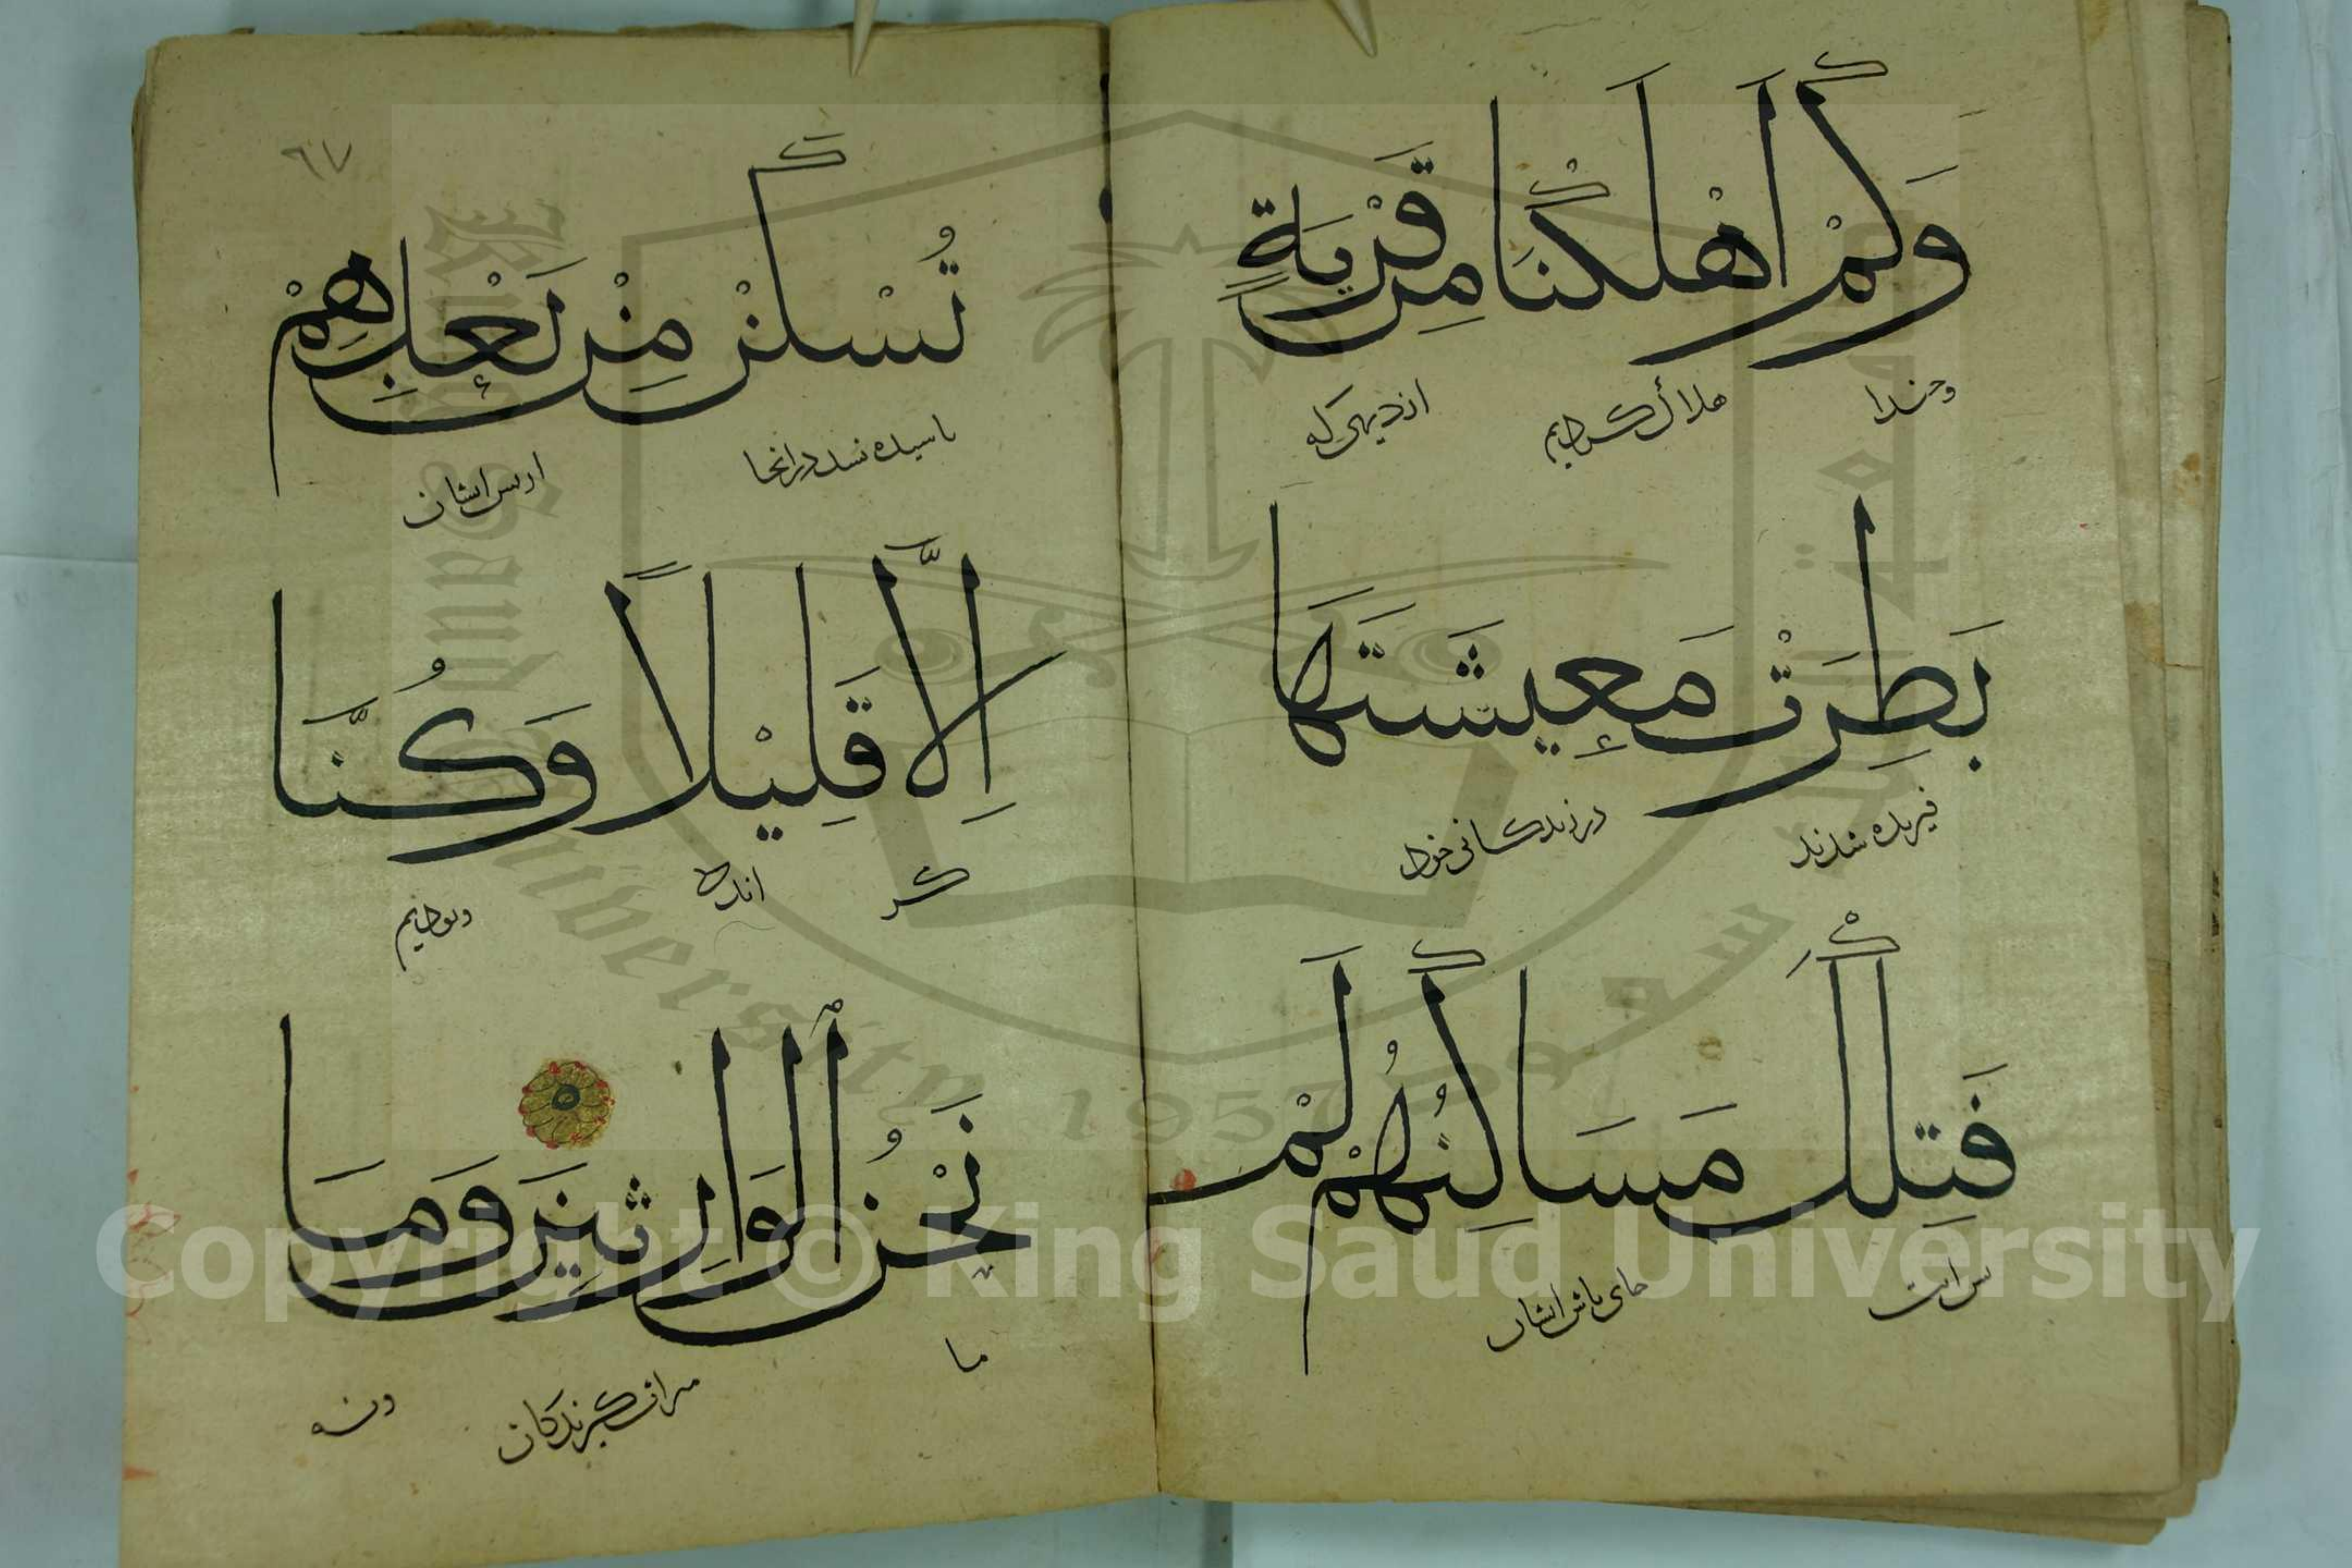 وَكَمْ أَهْلَكْنَا مِن قَرْيَةٍ
وچندا هلاك كرديم از ديهى كه
بَطِرَتْ مَعِيشَتَهَا
فيريده شدند در زندكانى خود
فَتِلْكَ مَسَاكِنُهُمْ لَمْ
پس انست جاى باش ايشان
٦٧
تُسْكَنْ مِنْ بَعْدِهِمْ
باسيده نشد در انجا از پس ايشان
إِلَّا قَلِيْلاً وَكُنَّا
مكر اندك وبوديم
نَحْنُ ٱلْوَارِثِينَ وَمَا
ما ميراث كيرندكان ونه
King Saud University
1957
Copyright © King Saud University